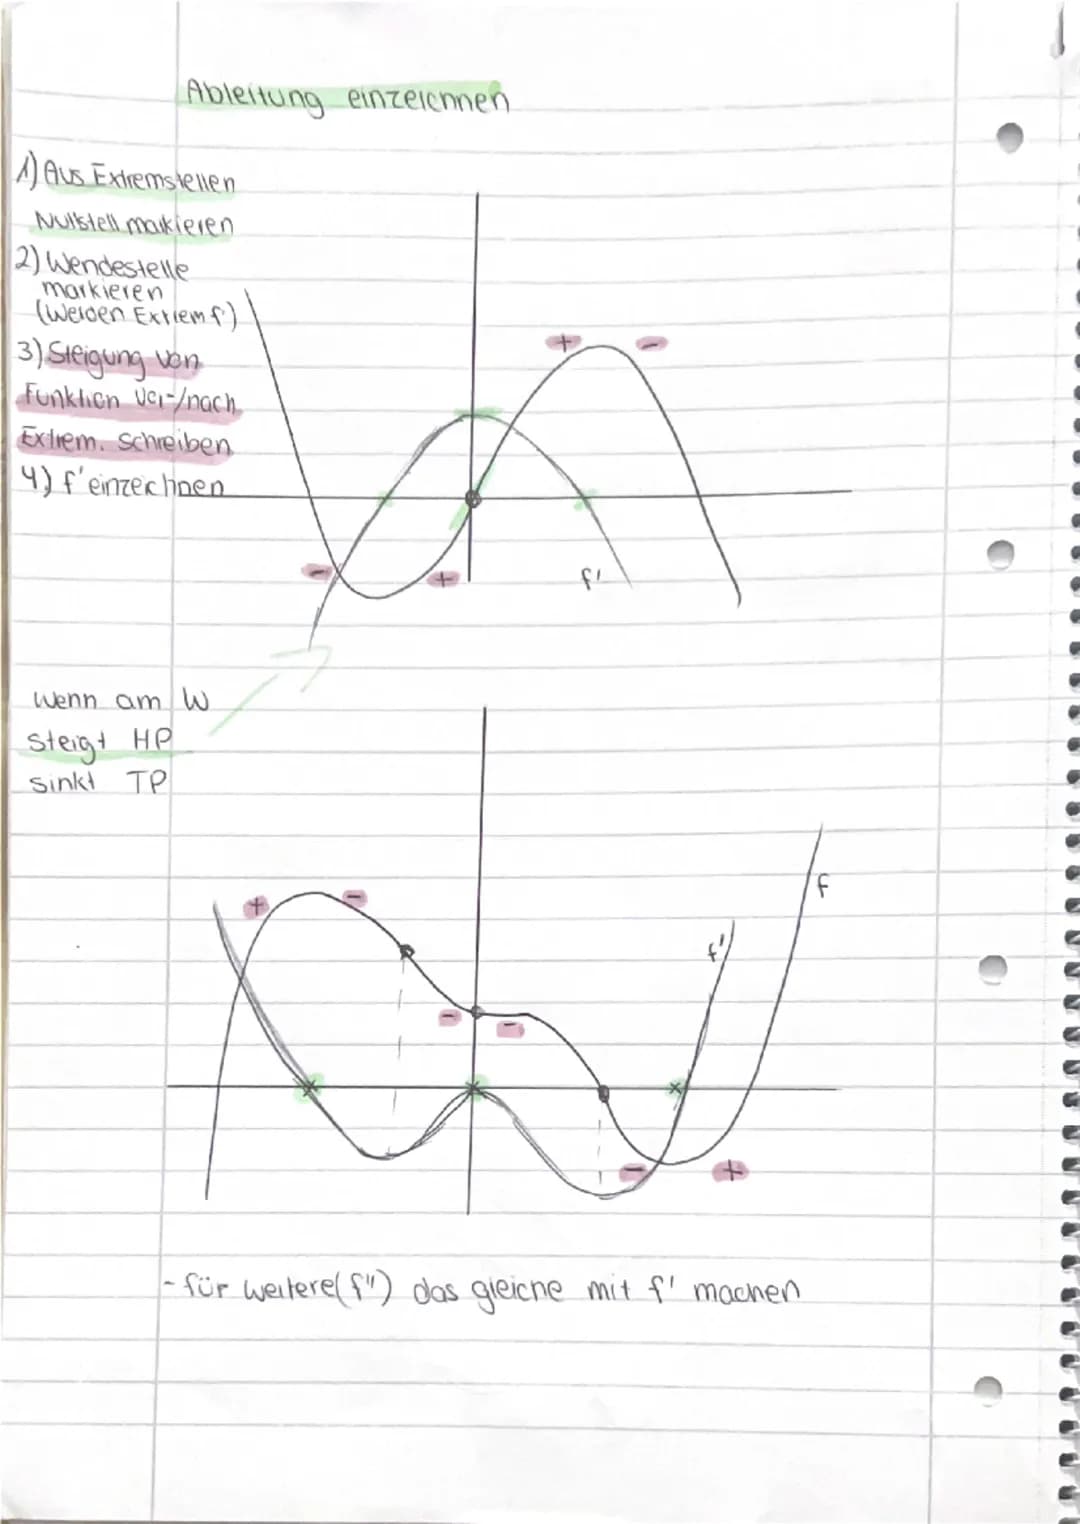 Ableitung einzeichnen
1) Aus Extremstellen
Nullstell markieren
2) Wendestelle
markieren
(Werden Extrem f')
3) Steigung von
Funktion vor-/nach
Extrem. schreiben
4) f' einzeichnen
+ -
- +
f'
wenn am W
steigt HP
sinkt TP
+ -
f
f'
- -
- +
- für weitere (f'') das gleiche mit f' machen